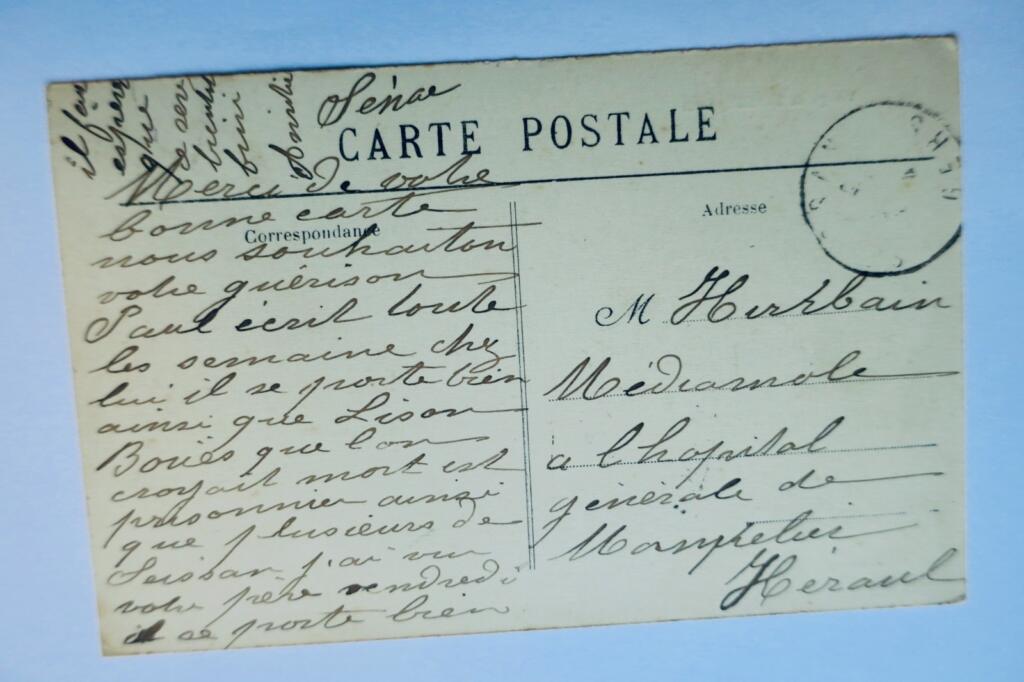 il fau
espérer
que
ce sera
bientôt
fini
Amitié
Sénac
CARTE POSTALE
Correspondance
Adresse
GERS
Merci de votre
bonne carte
nous souhaiton
votre guérison
Paul écrit toute
les semaine chez
lui il se porte bien
ainsi que Lison
Bouës que l'on
croyait mort est
prisonnier ainsi
que plusieurs de
Seissan j'ai vu
votre père vendredi
il se porte bien
M Herbain
Médiamole
a l hopital
générale de
Monpelier
Héraul